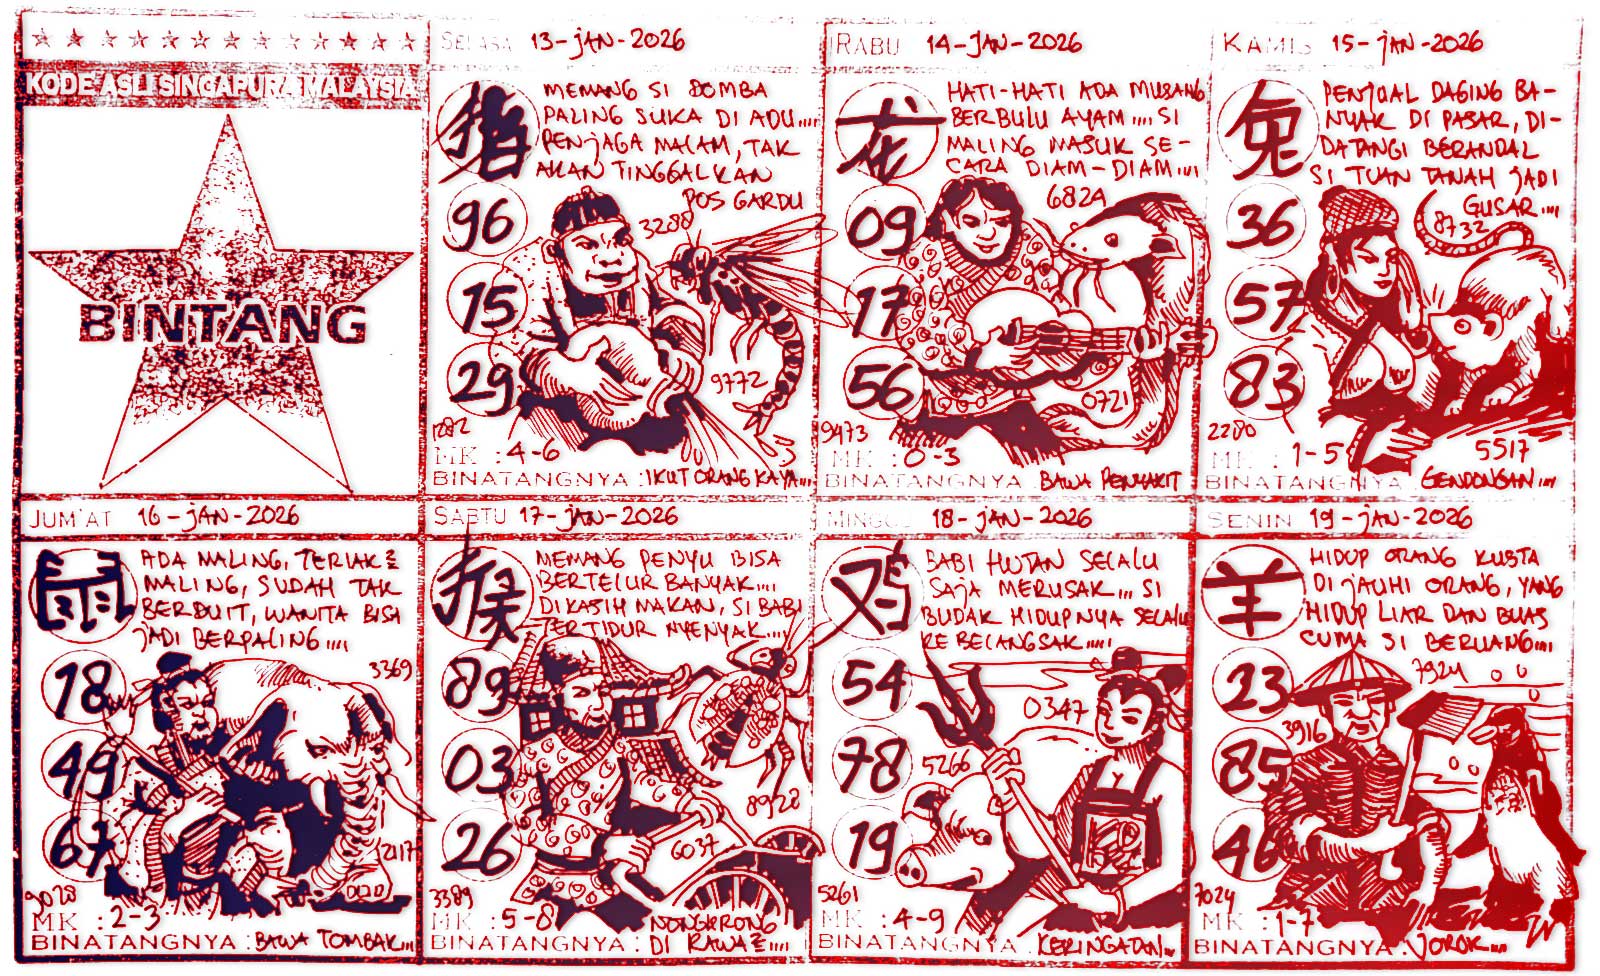 KODE ASLI SINGAPURA MALAYSIA
BINTANG
SELASA 13-JAN-2026
猪
MEMANG SI DOMBA
PALING SUKA DI ADU....
PENJAGA MALAM, TAK
AKAN TINGGALKAN
POS GARDU
96
3288
15
29
9772
1282
MK : 4-6
BINATANGNYA : IKUT ORANG KAYA....
RABU 14-JAN-2026
龙
HATI-HATI ADA MUSANG
BERBULU AYAM.... SI
MALING MASUK SE-
CARA DIAM-DIAM....
6824
09
17
56
0721
9473
MK : 0-3
BINATANGNYA : BAWA PENYAKIT
KAMIS 15-JAN-2026
兔
PENJUAL DAGING BA-
NYAK DI PASAR, DI-
DATANGI BERANDAL
SI TUAN TANAH JADI
GUSAR....
36
8732
57
83
2280
5517
MK : 1-5
BINATANGNYA : GENDONGAN....
JUM'AT 16-JAN-2026
鼠
ADA MALING, TERIAK2
MALING, SUDAH TAK
BERDUIT, WANITA BISA
JADI BERPALING....
18
3369
49
67
2117
9028
MK : 2-3
BINATANGNYA : BAWA TOMBAK....
SABTU 17-JAN-2026
猴
MEMANG PENYU BISA
BERTELUR BANYAK....
DIKASIH MAKAN, SI BABI
TERTIDUR NYENYAK....
89
03
8928
26
6037
3389
MK : 5-8
BINATANGNYA : NONGKRONG
DI RAWA2....
MINGGU 18-JAN-2026
鸡
BABI HUTAN SELALU
SAJA MERUSAK... SI
BUDAK HIDUPNYA SELALU
KE BELANGSAK.....
54
0347
78
5266
19
5261
MK : 4-9
BINATANGNYA : KERINGATAN....
SENIN 19-JAN-2026
羊
HIDUP ORANG KUSTA
DI JAUHI ORANG, YANG
HIDUP LIAR DAN BUAS
CUMA SI BERUANG....
7924
23
3916
85
46
7024
MK : 1-7
BINATANGNYA : JOROK....